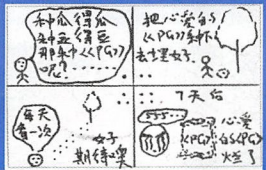 种瓜得瓜
种豆得豆
那种《PG》
呢?
把心爱的
《PG》种下
去
好了
每天
看一次
好了
期待噢
7天后
555…
心爱
的《PG》
烂了